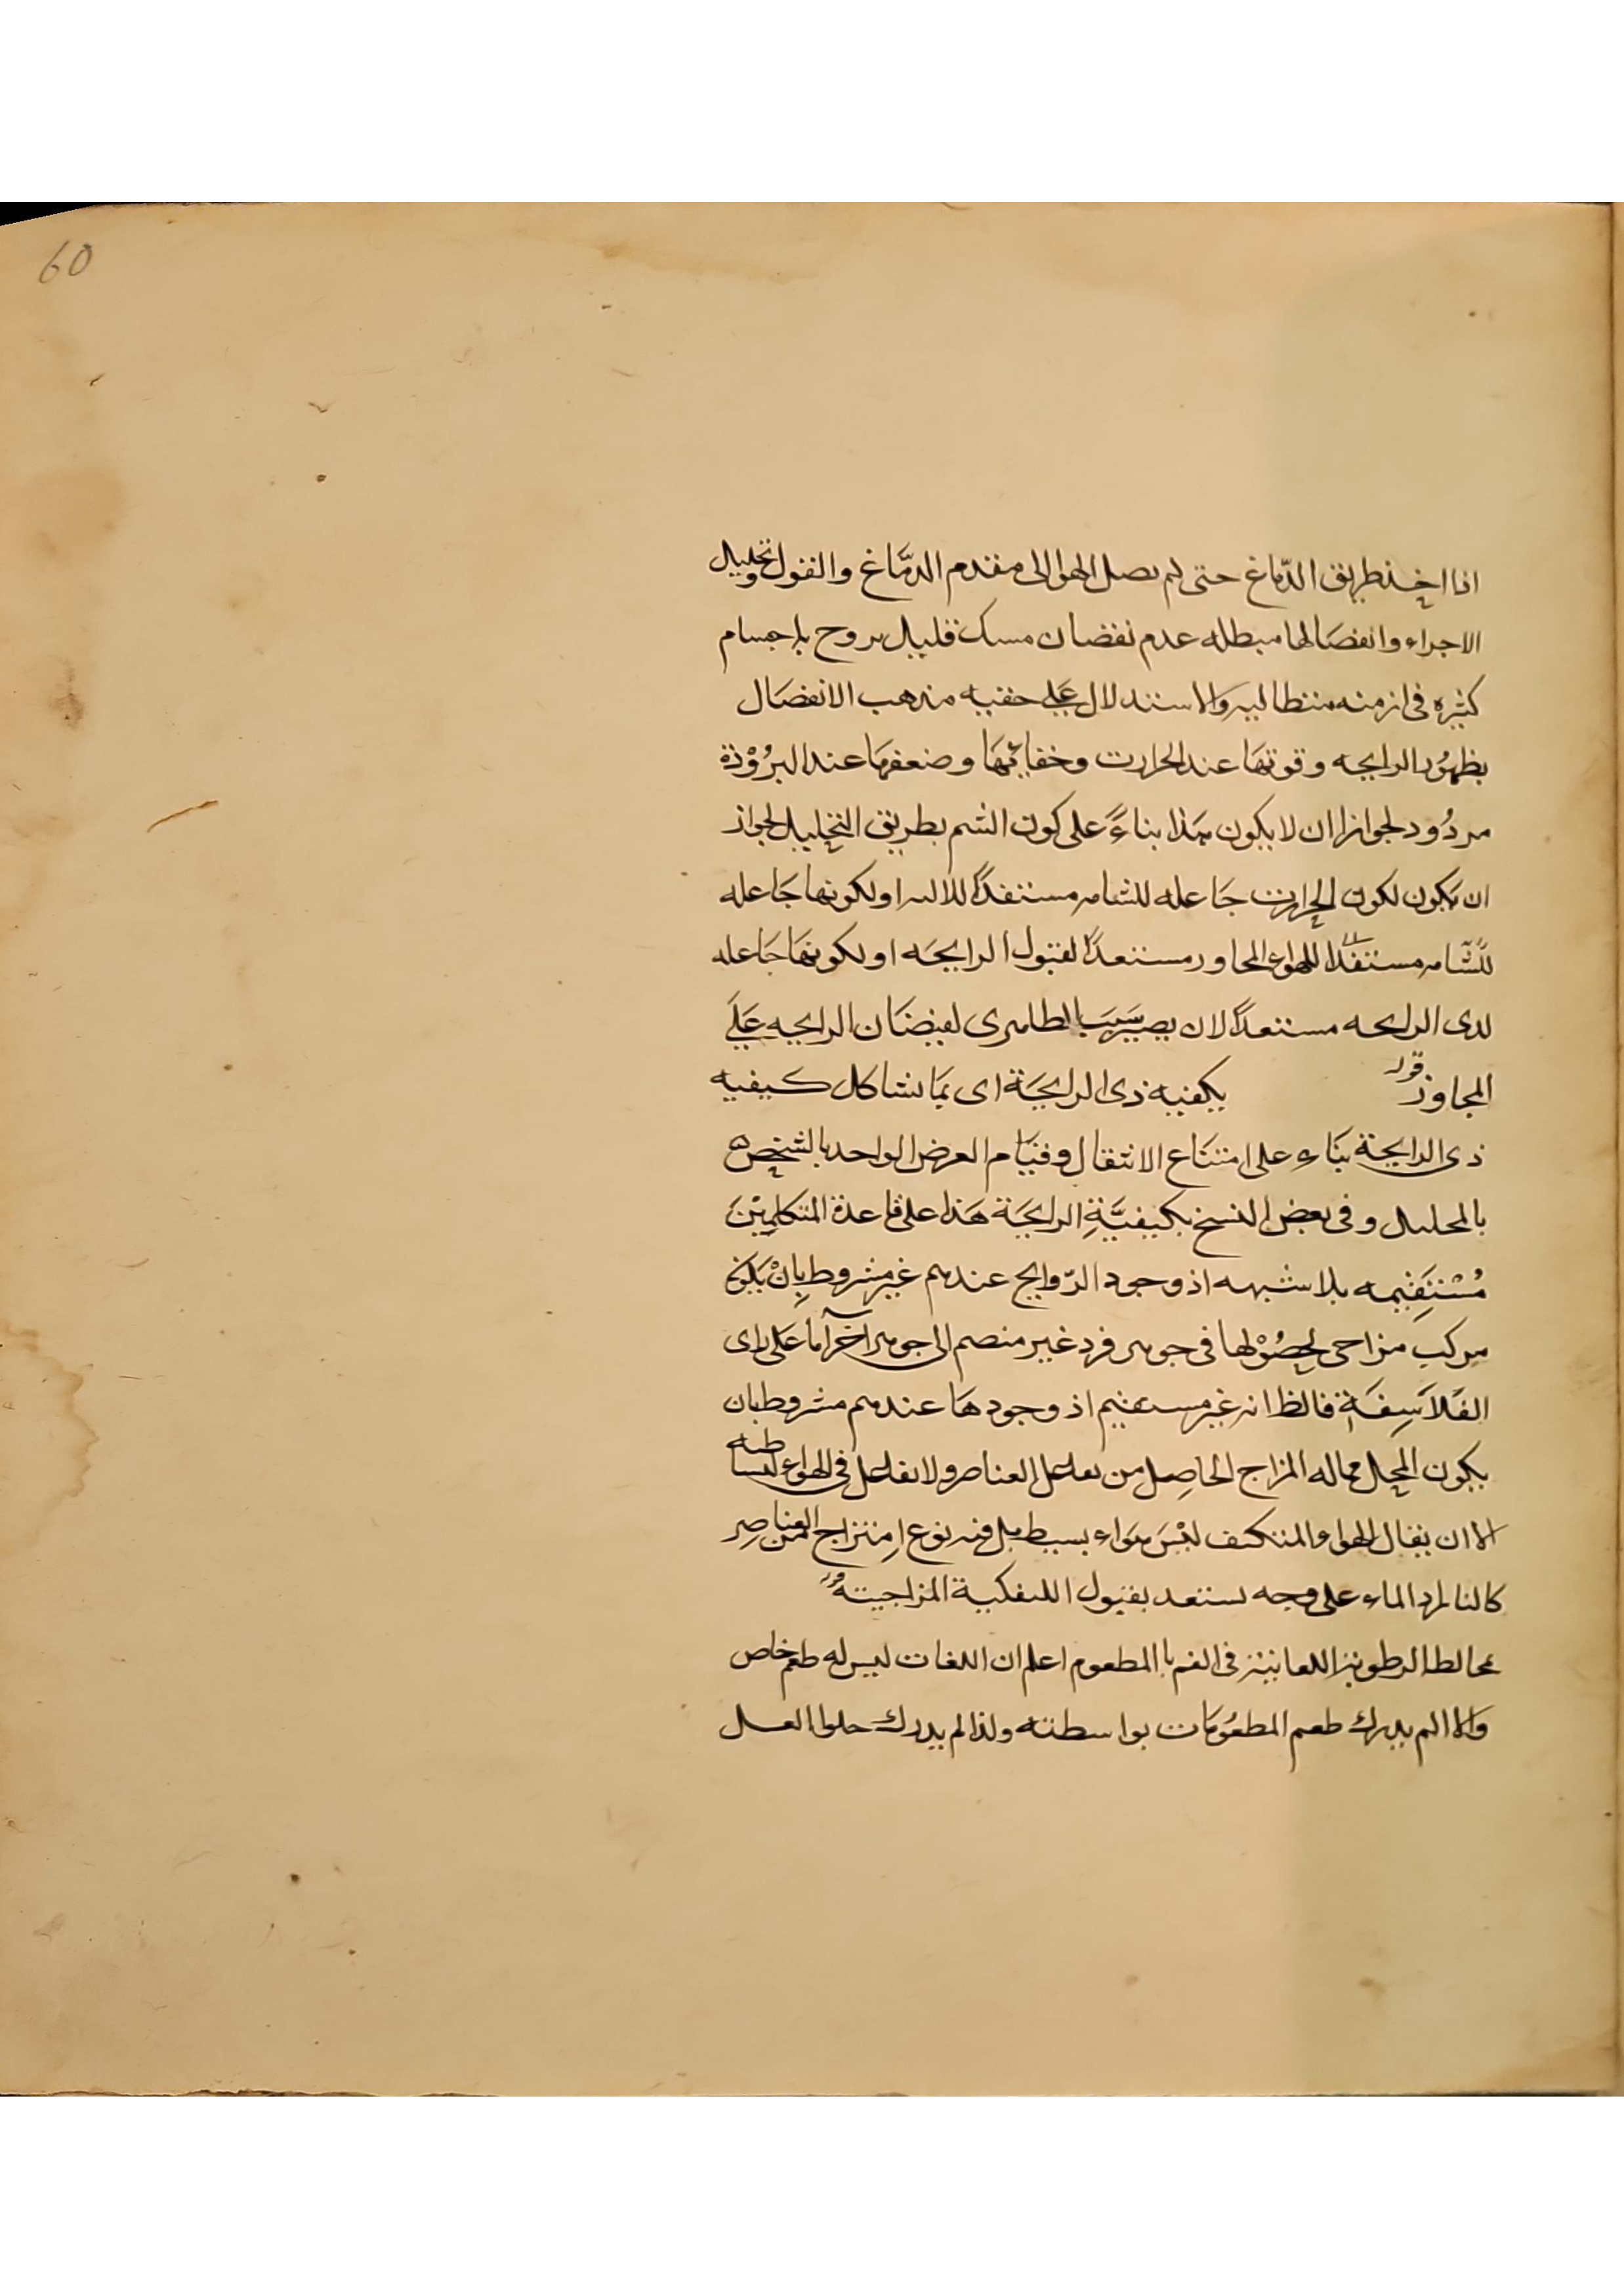 60
اذا اخذ طريق الدّماغ حتى لم يصل الهوا الى مقدم الدمّاغ والقول بتحليل
الاجراء وانفصَالها مبطله عدم نقصان مسك قليل بروح باجسام
كثيره فى ازمنه متطاليه والاستدلال عَلى حقيه مذهب الانفصَال
بظهُور الرايحه وقوتهَا عند الحرارت وخفائهَا وضعفهَا عند البرُوْدة
مردُود لجواز ان لا يكون هَذا بناءً على كون الشم بطريق التحليل لجواز
ان يكون لكون الحرارت جَاعله للشامه مستعدًا للاله او لكونها جَاعله
للشّامه مستعدًا للهواء المحاور مستعدًا لقبول الرايحَه او لكونهَا جَاعله
لدى الرايحه مستعدًا لان يصير سَببَا لفيضَان الرايحه عَلَى
المجاوز قوله
بكيفيه ذى الرايحَة اى بمَا يشاكل كيفيه
ذى الرايحة بنَاءِ على امتنَاع الانتقال وقيَام العرض الواحد بالشخص
بالمحليں وفى بعض النسخ بكيفيَّةِ الرايحَة هَذا على قاعدة المتكلمِيْنَ
مُسْتَقِيمه بلا شبهه اذ وجود الرّوايح عندهم غير مشروط بِانْ يَكونَ
مركب مزاحى لحصُوْلها فى جوهر فرد غير منصم الى جوهر آخر آما عَلى راى
الفَلاَسِفَةِ فالظانه غير مستقيم اذ وجودهَا عندهم مشروط بان
يكون المحل مماله المزاج الحاصِل من تفاعل العناصر ولا تفاعل فى الهواء لبساطه
الا ان يقال الهواء المتكيف ليْسَ هَواء بسيط بل فيه نوع اِمتزاج من العناصِر
كالنار والماء على وجه يستعد بقبول الكيفية المزاجيته قوله
بمخالطه الرطوبه اللعابيه فى الفم باالمطعوم اعلم ان اللعاب ليس له طعم خاص
وَالا لم يدرك طعم المطعُومَات بواسطته ولذا لم يدرك حلوا العسل